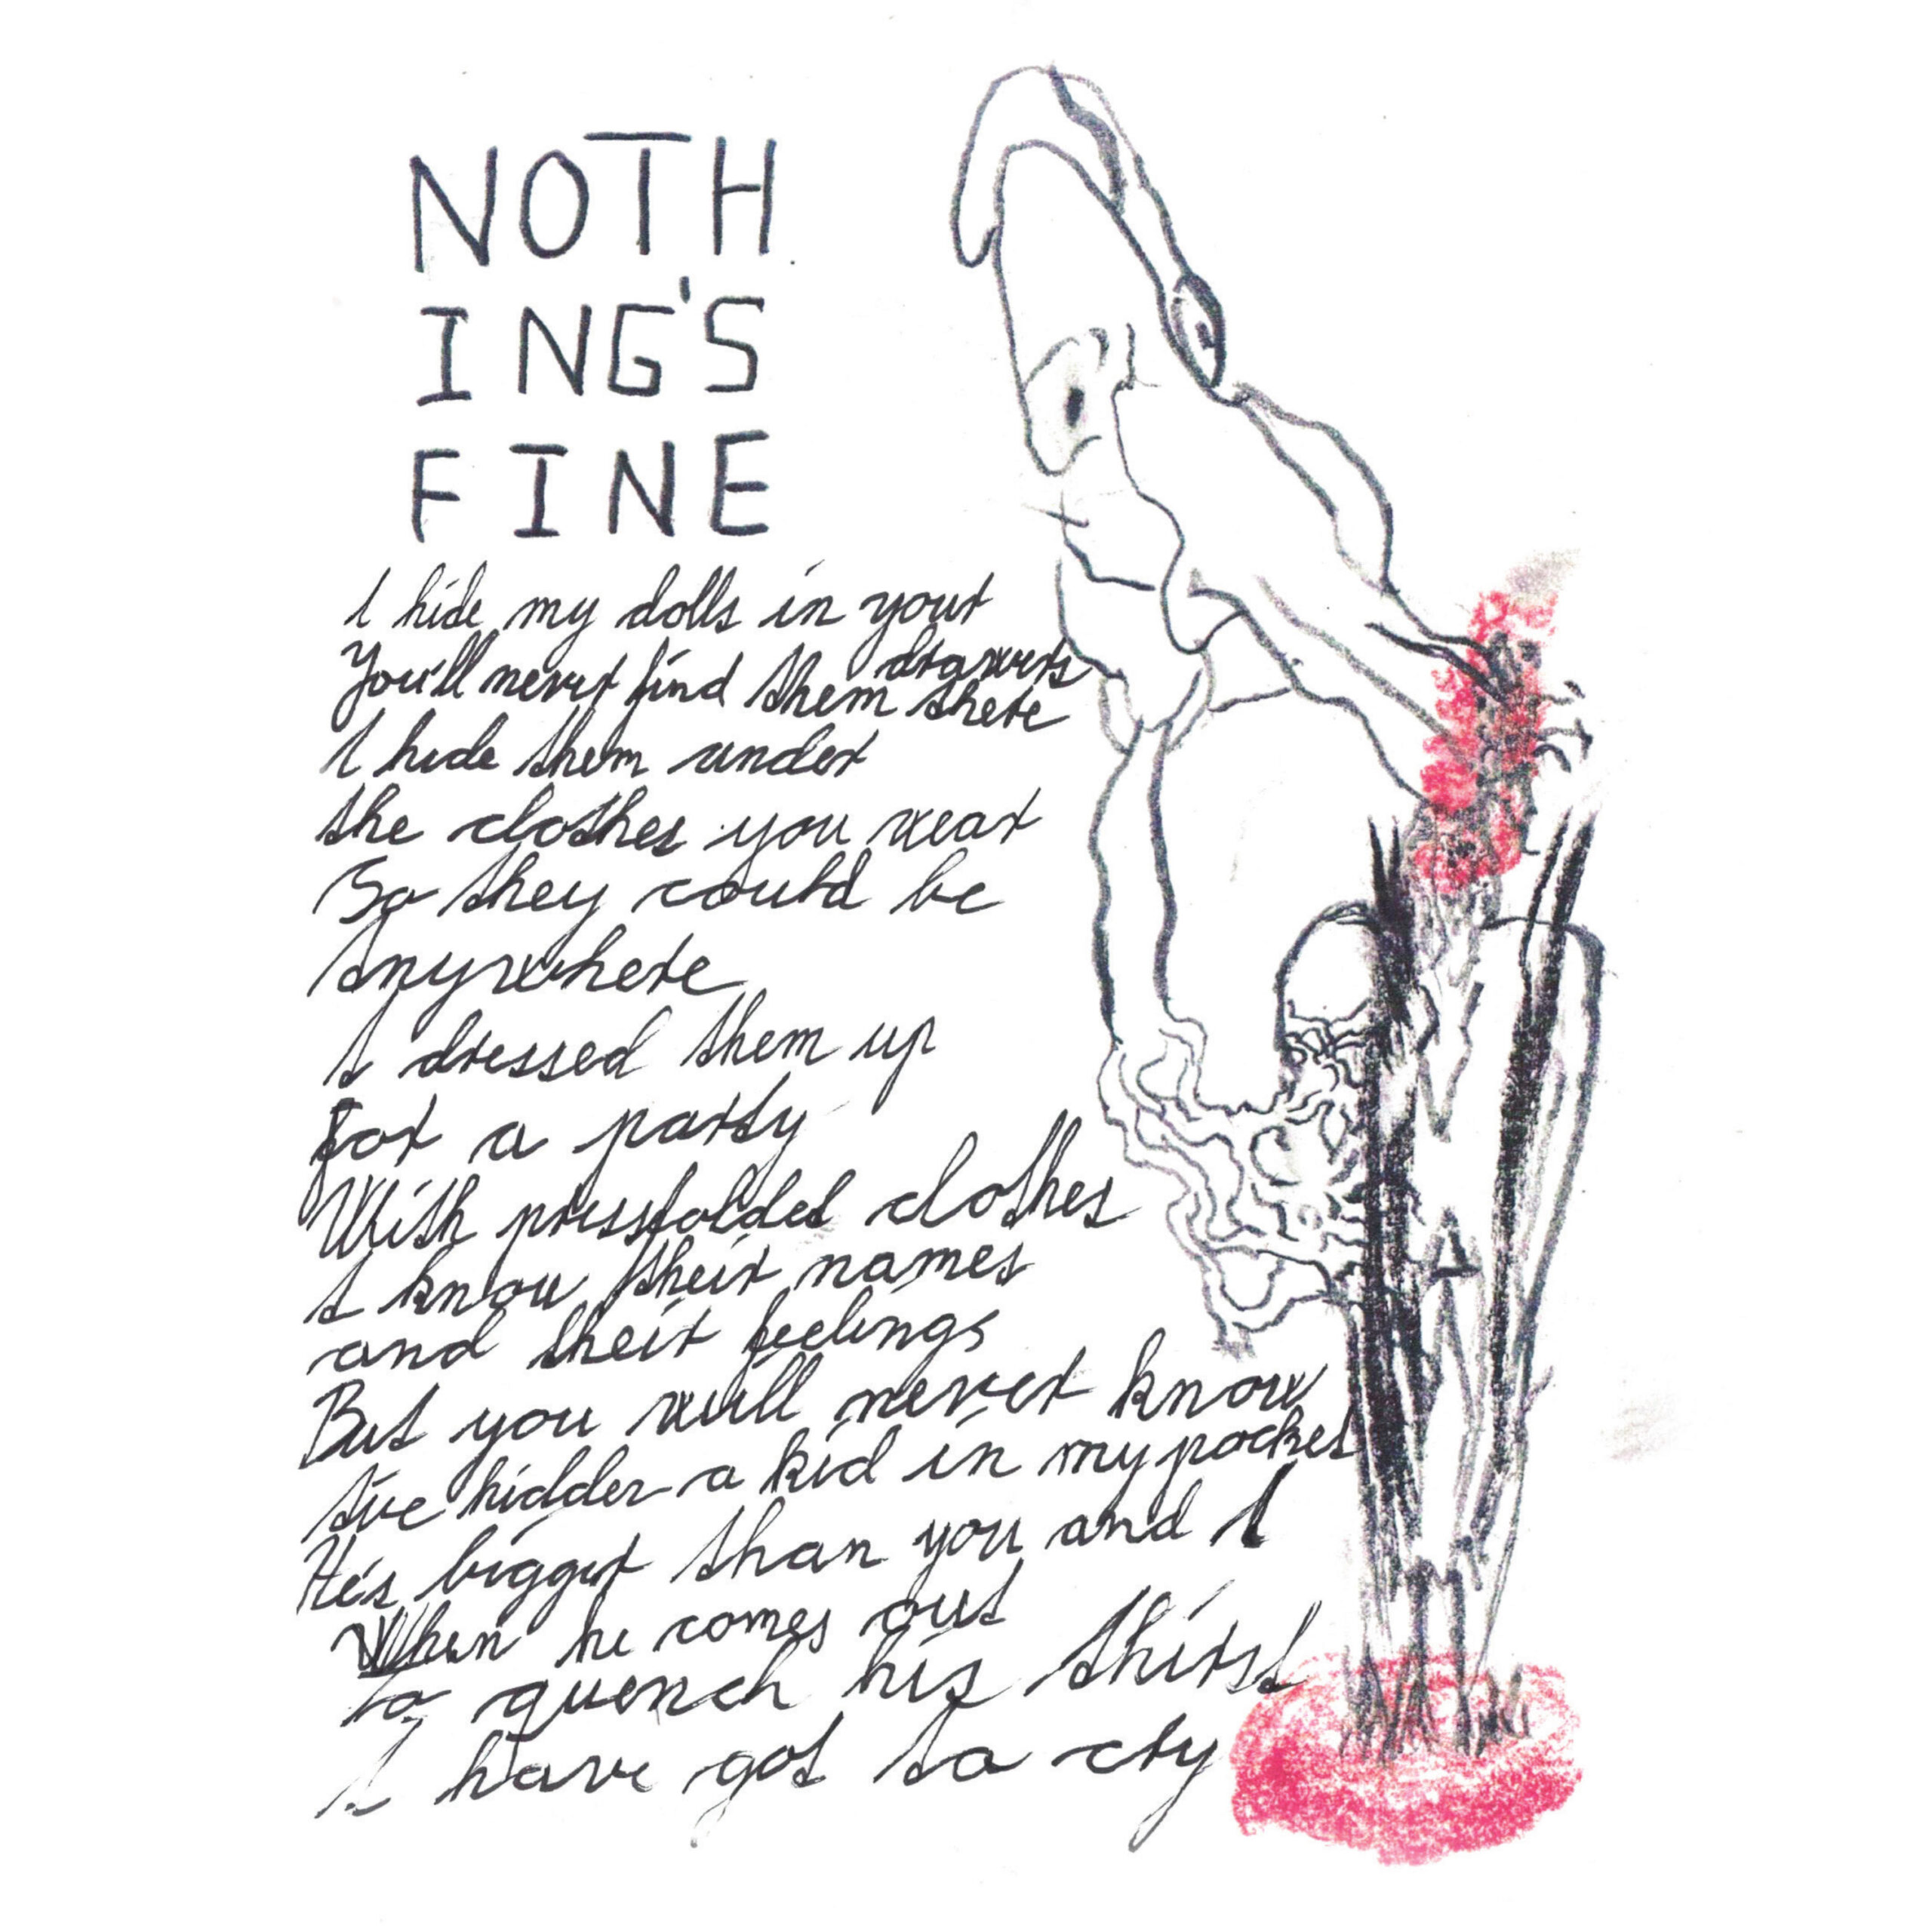 NOTH
ING'S
FINE
I hide my dolls in your
drawers
You'll never find them there
I hide them under
the clothes you wear
So they could be
Anywhere
I dressed them up
for a party
With pressfolded clothes
I know their names
and their feelings
But you will never know
I've hidden a kid in my pocket
He's bigger than you and I
When he comes out
to quench his thirst
I have got to cry